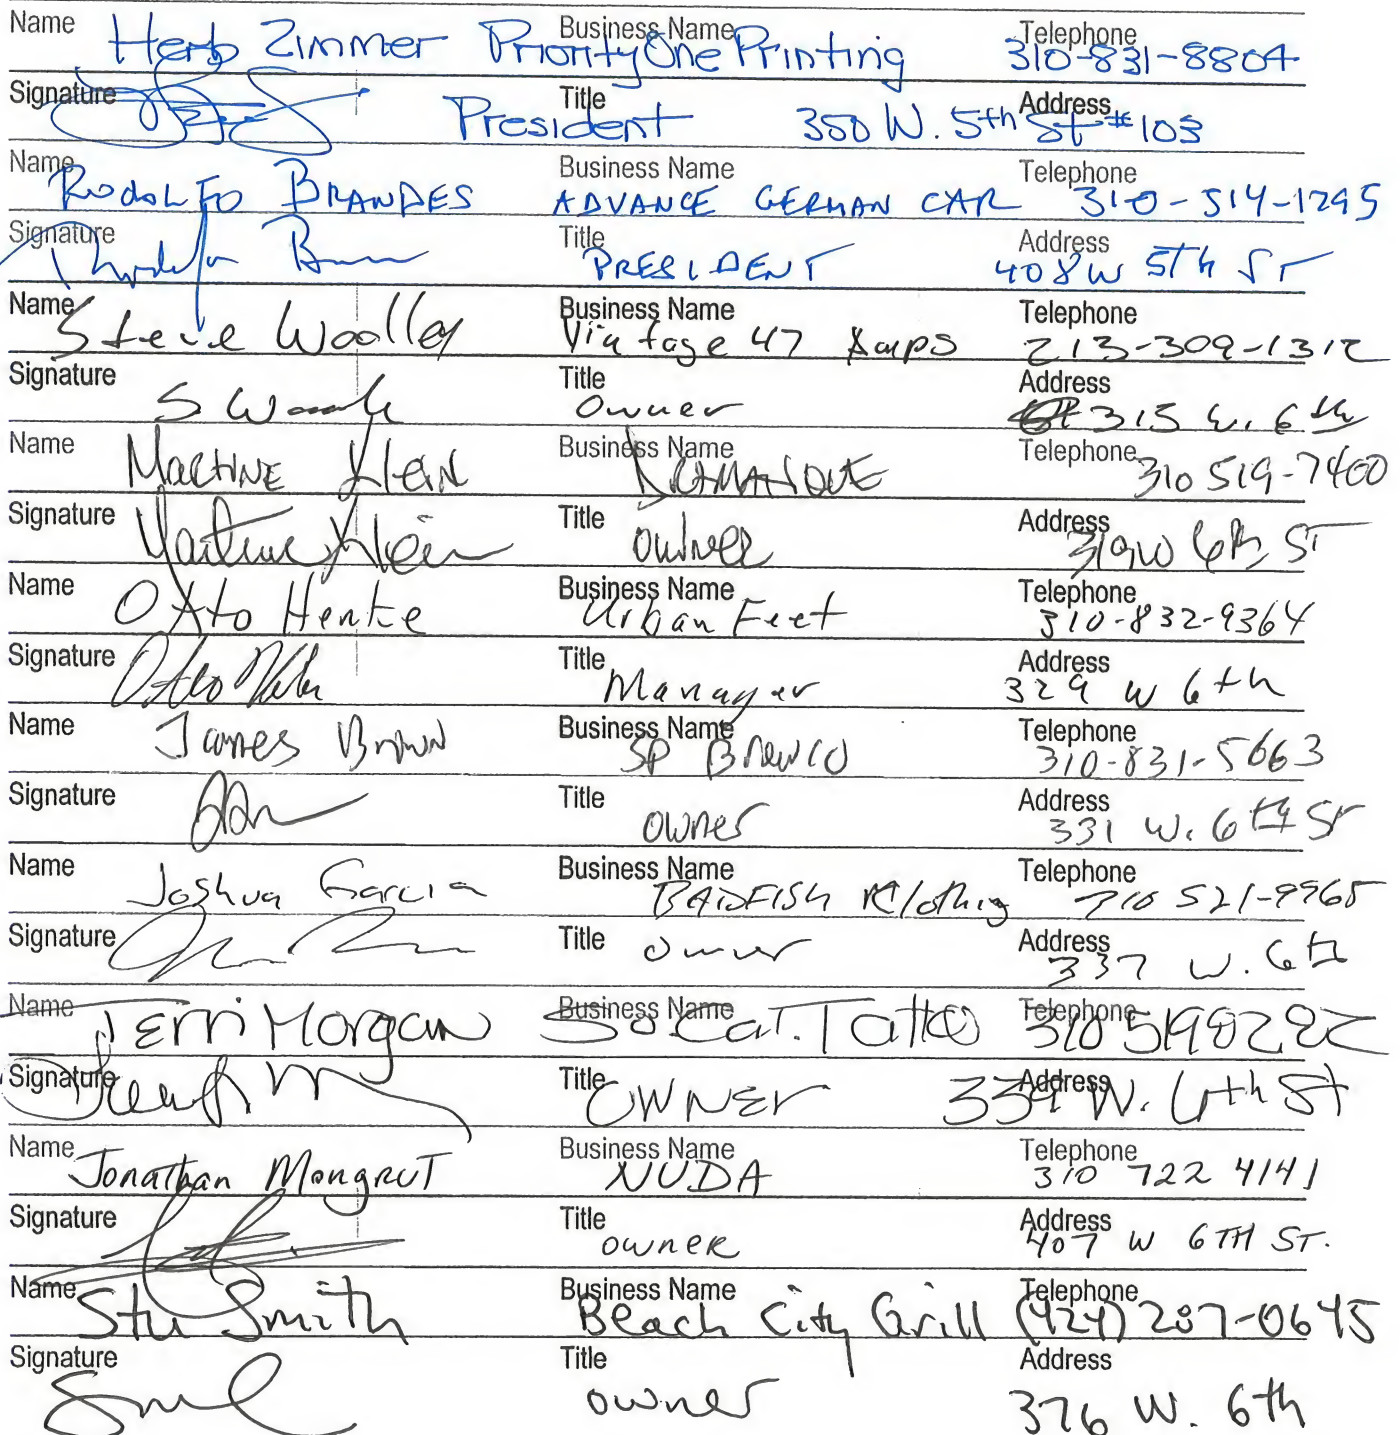 Name Herb Zimmer Business Name PriorityOne Printing Telephone 310-831-8804
Signature Title President Address 350 W. 5th St #103
Name Rodolfo Brandes Business Name ADVANCE GERMAN CAR Telephone 310-514-1295
Signature Title PRESIDENT Address 408 W 5th ST
Name Steve Woolley Business Name Vintage 47 Amps Telephone 213-309-1312
Signature Title Owner Address 315 W. 6th
Name MARTINE Klein Business Name Telephone 310 519-7400
Signature Martine Klein Title owner Address 319 W 6th ST
Name Otto Hentie Business Name Urban Feet Telephone 310-832-9364
Signature Title Manager Address 329 W 6th
Name James Brown Business Name SP Brewco Telephone 310-831-5663
Signature Title owner Address 331 W. 6th St
Name Joshua Garcia Business Name BADFISH Klothing Telephone 310 521-9965
Signature Title owner Address 337 W. 6th
Name Terri Morgan Business Name So Cal. Tattoo Telephone 310 5198282
Signature Title OWNER Address 339 W. 6th St
Name Jonathan Mongrut Business Name NUDA Telephone 310 722 4141
Signature Title owner Address 407 W 6TH ST.
Name Stu Smith Business Name Beach City Grill Telephone (424) 287-0645
Signature Title owner Address 376 W. 6th